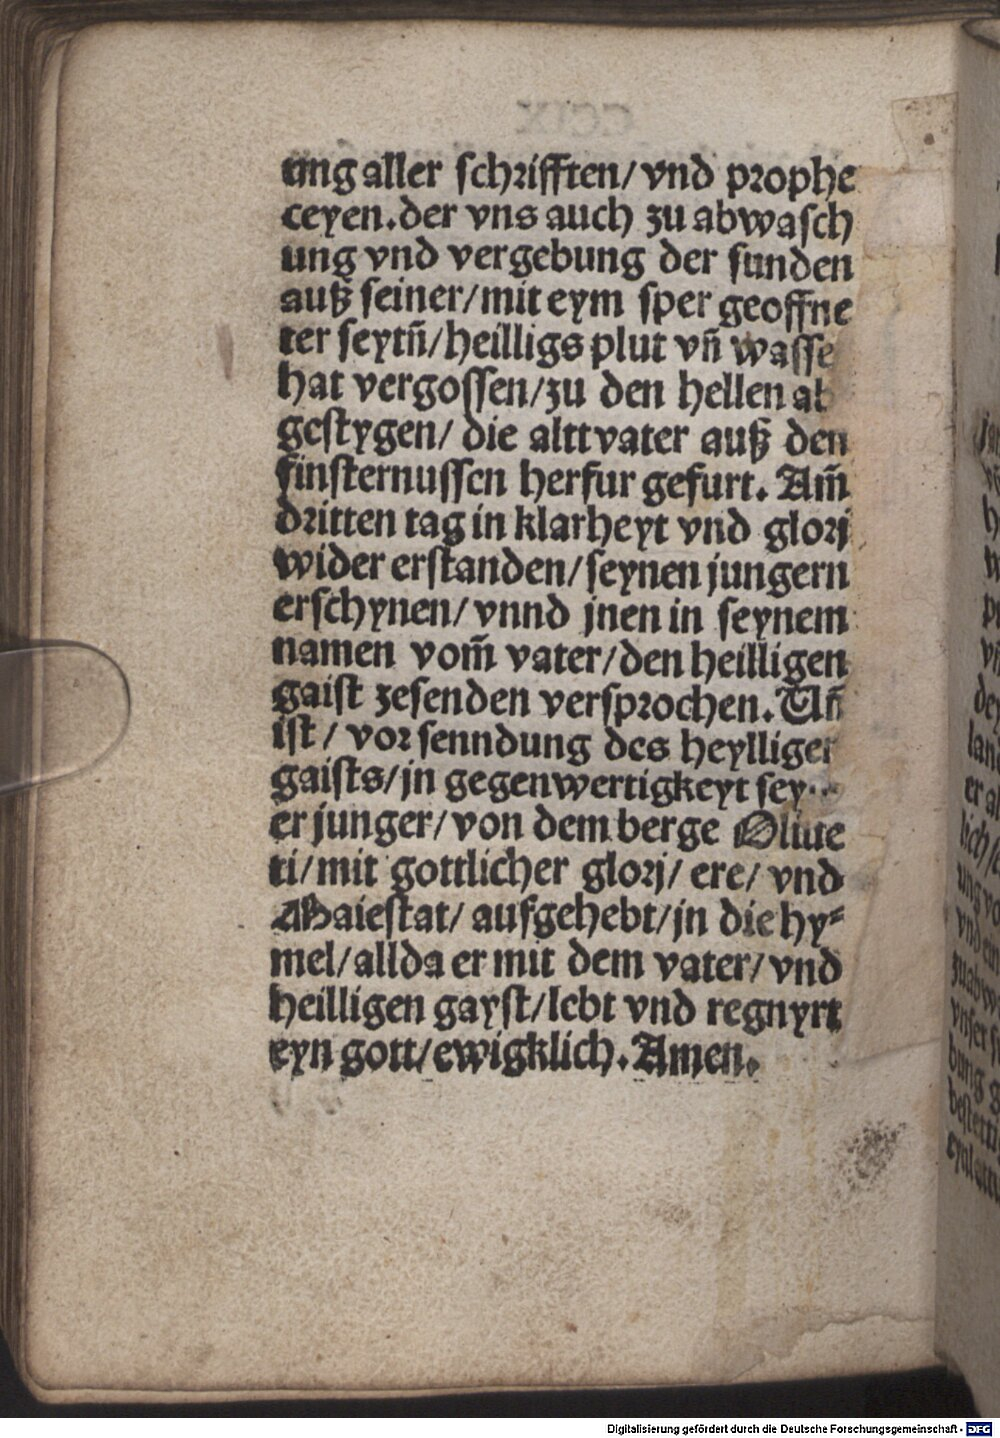 ung aller schrifften/ vnd prophe
ceyen. der vns auch zu abwasch
ung vnd vergebung der sunden
auß seiner/ mit eym sper geoffne
ter seytñ/ heilligs plut vñ wasse
hat vergossen/ zu den hellen ab
gestygen/ die alttvater auß den
finsternussen herfur gefurt. Am̃
dritten tag in klarheyt vnd glorj
wider erstanden/ seynen jungern
erschynen/ vnnd jnen in seynem
namen vom̃ vater/ den heilligen
gaist zesenden versprochen. Uñ
ist/ vor senndung des heylligen
gaists/ jn gegenwertigkeyt sey
er junger/ von dem berge Oliue
ti/ mit gottlicher glorj/ ere/ vnd
Maiestat/ aufgehebt/ jn die hy⸗
mel/ allda er mit dem vater/ vnd
heilligen gayst/ lebt vnd regnyrt
eyn gott/ ewigklich. Amen.
Digitalisierung gefördert durch die Deutsche Forschungsgemeinschaft - DFG